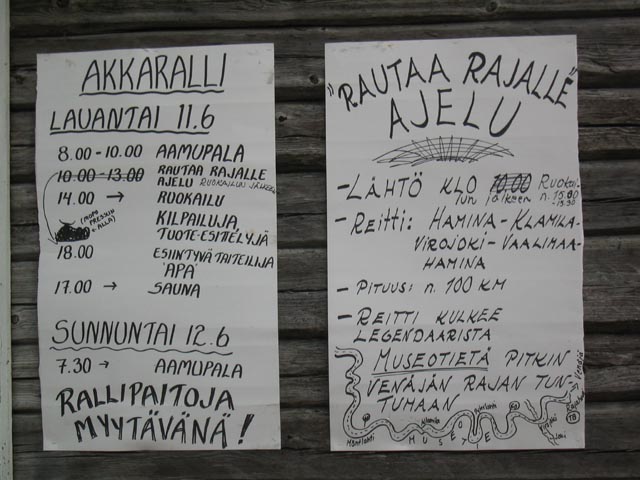 AKKARALLI
LAUANTAI 11.6
8.00-10.00 AAMUPALA
10.00-13.00 RAUTAA RAJALLE
AJELU RUOKAILUN JÄLKEEN
14.00 → RUOKAILU
KILPAILUJA,
TUOTE-ESITTELYJÄ
18.00 ESIINTYVÄ TAITEILIJA
"APA"
17.00 → SAUNA
SUNNUNTAI 12.6
7.30 → AAMUPALA
RALLIPAITOJA
MYYTÄVÄNÄ!
"RAUTAA RAJALLE"
AJELU
- LÄHTÖ KLO 10.00 RUOKAI-
LUN JÄLKEEN n. 15.00
-15.30
- REITTI: HAMINA - KLAMILA-
VIROJOKI - VAALIMAA-
HAMINA
- PITUUS: n. 100 KM
- REITTI KULKEE
LEGENDAARISTA
MUSEOTIETÄ PITKIN
VENÄJÄN RAJAN TUN-
TUMAAN
MUSEOTIE
Klamila
Venäjä